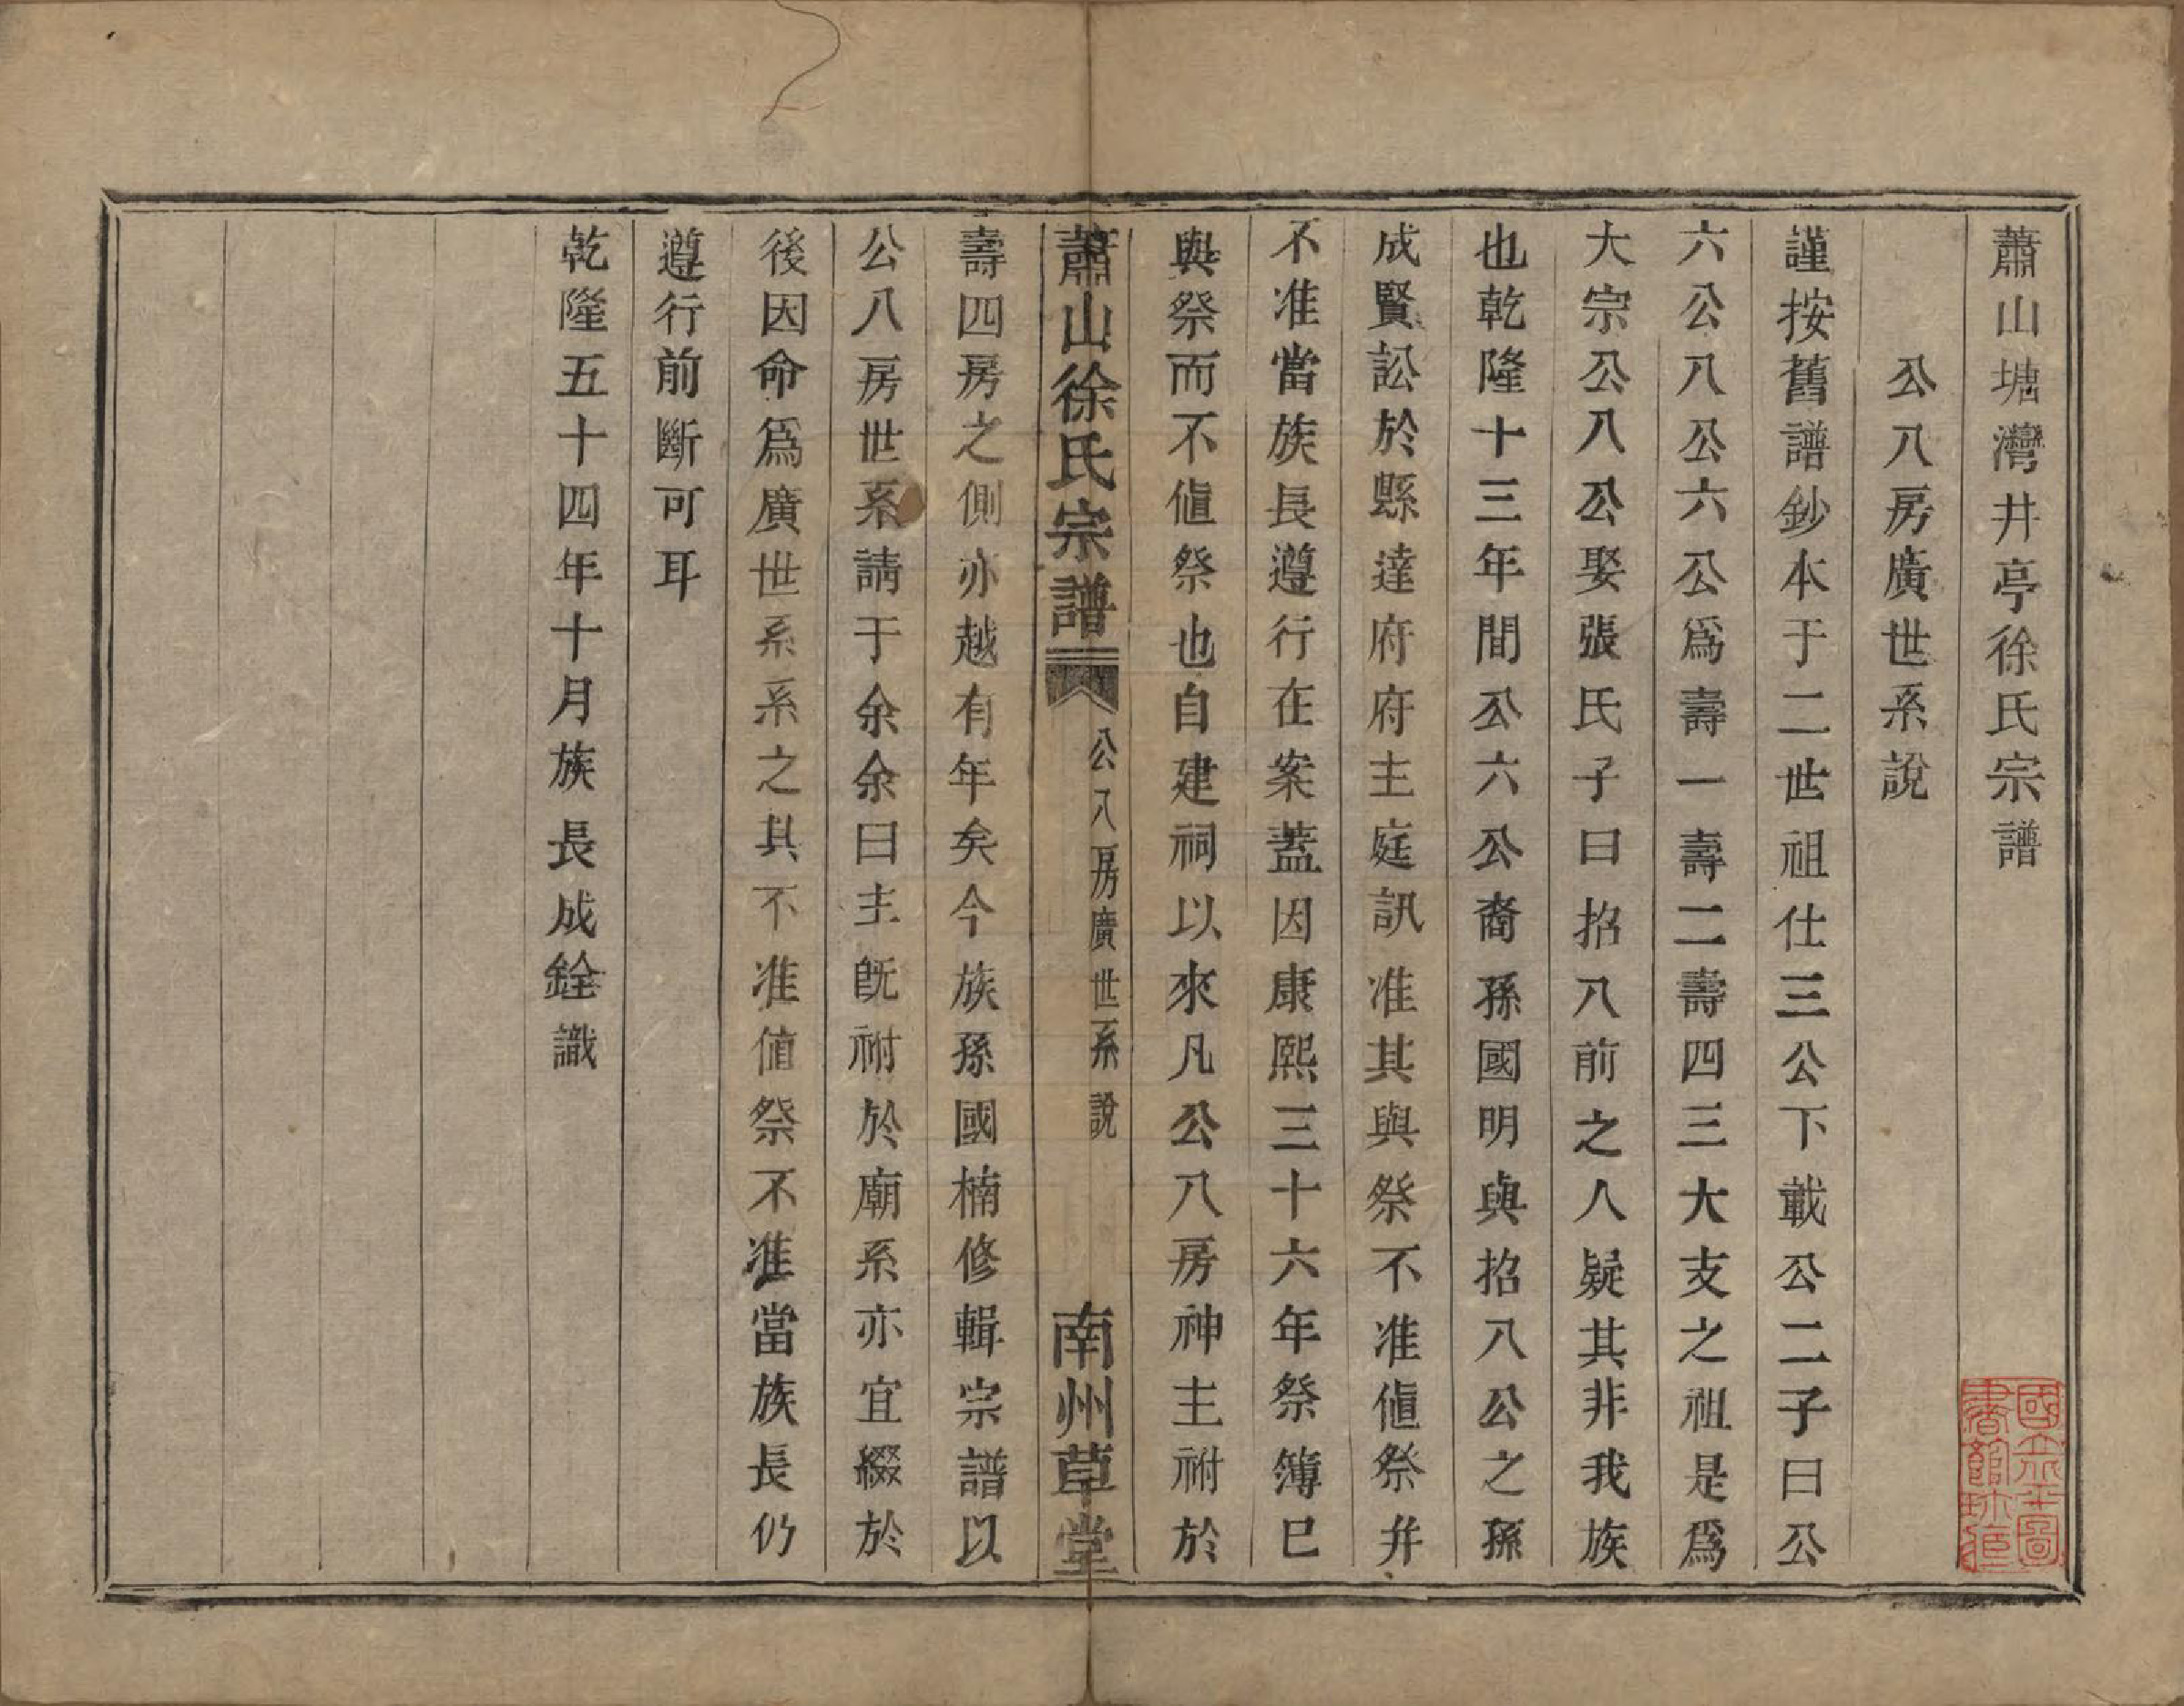 蕭山塘灣井亭徐氏宗譜
公八房廣世系說
謹按舊譜鈔本于二世祖仕三公下載公二子曰公
六公八公六公爲壽一壽二壽四三大支之祖是爲
大宗公八公娶張氏子曰招八前之人疑其非我族
也乾隆十三年間公六公裔孫國明與招八公之孫
成賢訟於縣達府府主庭訊准其與祭不准値祭并
不准當族長遵行在案蓋因康熙三十六年祭簿已
與祭而不値祭也自建祠以來凡公八房神主祔於
蕭山徐氏宗譜
公八房廣世系說
南州草堂
壽四房之側亦越有年矣今族孫國楠修輯宗譜以
公八房世系請于余余曰主既祔於廟系亦宜綴於
後因命爲廣世系系之其不准値祭不准當族長仍
遵行前斷可耳
乾隆五十四年十月族長成銓識
國立北平圖
書館珍藏